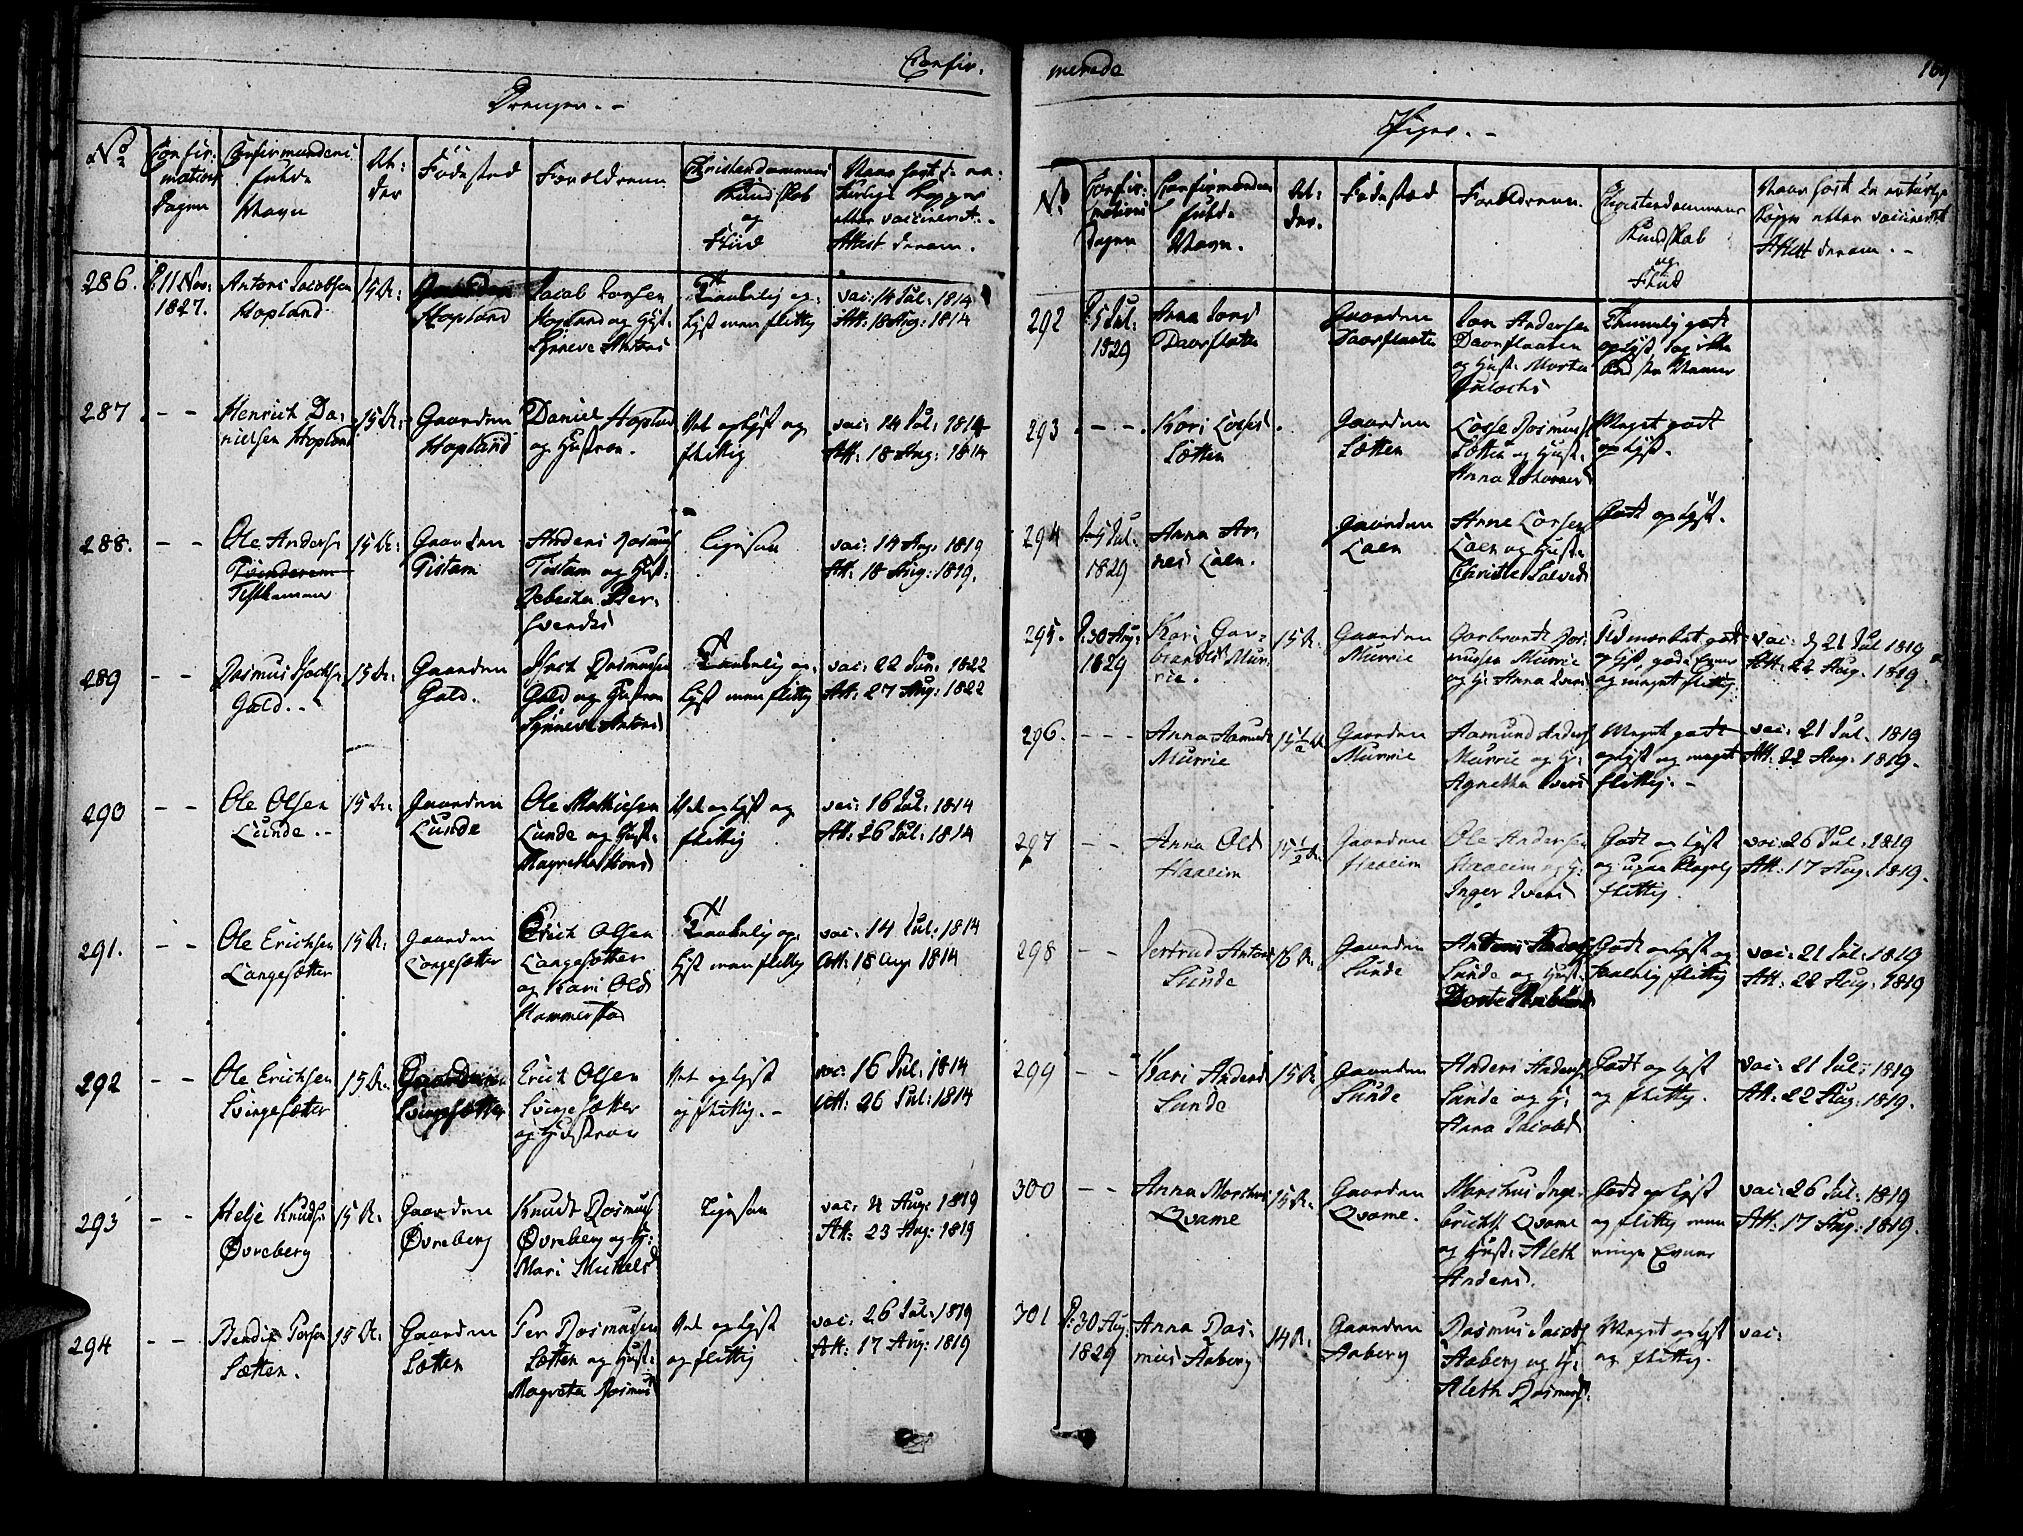 Confir-
Drenger. -
No
Confir-
mations
Dagen
Confirmandens
fulde
Navn
Al-
der
Födested
Forældrene
Christendommens
Kundskab
og
Fliid
Naar havt de na-
turlige Kopper
eller vaccineret. -
Attest derom.
286.
D. 11 Nov:
1827.
Antoni Jacobsen
Hopland
15 A:
Gaarden
Hopland
Jacob Larsen
Hopland og Hust:
Synneve Antoni
Taalelig op-
lyst men flittig
vac: 14 Jul: 1814
Att: 18 Aug: 1814
287
- -
Henrich Da-
nielsen Hopland
15 A:
Gaarden
Hopland
Daniel Hopland
og Hustroe.
Vel oplyst og
flittig
vac: 14 Jul: 1814
Att: 18 Aug: 1814
288.
- -
Ole Anders:
15 A:
Gaarden
Tistam
Anders Rasmus
Tistam og Hust:
Rebecka Per-
Svends
Ligesaa
vac: 14 Aug: 1819
Att: 18 Aug: 1819.
289
- -
Rasmus
Gald. -
15 A:
Gaarden
Gald.
Rasmusen
Gald og Hustroe
Synneve Antoni
Taalelig op-
lyst men flittig
vac: 22 Jun: 1822
Att: 27 Aug: 1822
290
- -
Ole Olsen
Lunde. -
15 A:
Gaarden
Lunde
Ole Mathiesen
Lunde og Hust:
Magrethe
Vel oplyst og
flittig
vac: 16 Jul: 1814
Att: 26 Jul: 1814
291.
- -
Ole Erichsen
Langesætter
15 A:
Gaarden
Langesætter
Erich Olsen
Langesætter
og Kari Olsd
Hammerstad
Taalelig op-
lyst men flittig
vac: 14 Jul: 1814
Att: 18 Aug 1814
292
- -
Ole Erichsen
Svingesætter
15 A:
Gaarden
Svingesætter
Erich Olsen
Svingesætter
og Hustroe
Vel oplyst
og flittig. -
vac: 16 Jul: 1814
Att: 26 Jul: 1814
293
- -
Helje Knuds:
Øvreberg
15 A:
Gaarden
Øvreberg
Knudt Rasmus
Øvreberg og H:
Mari Michelsd
Ligesaa
vac: 4 Aug: 1819
Att: 23 Aug: 1819
294
- -
Bendix Persen
Lætten.
15 A:
Gaarden
Lætten
Per Rasmusen
Lætten og Hust:
Magreta Rasmusd
Vel oplyst
og flittig
vac: 26 Jul: 1819
Att: 17 Aug: 1819
merede
169
Piger. -
No
Confir-
mations
Dagen
Confirmandens
fulde
Navn.
Al-
der.
Födested
Forældrene.
Christendommens
Kundskab
og
Fliid
Naar havt de naturlige
Kopper eller vaccineret
Attest derom. -
292
D. 5 Jul:
1829
Anna Jonsd
Davrflaten
Gaarden
Davrflaaten
Jon Andersen
Davrflaaten
og Hust: Marta
Temmelig godt
oplyst dog ikke
293
- - -
Kari Lasses
Lætten
Gaarden
Lætten
Lasse Rasmus:
Lætten og Hust:
Anna
Meget godt
oplyst.
294
D. 5 Jul:
1829
Anna Ar-
nes Loen.
Gaarden
Loen
Arne Larsen
Loen og Hust:
Christie
Godt oplyst.
295.
D. 30 Aug:
1829
Kari Gar-
brands Mur-
rie.
15 A:
Gaarden
Murrie
Garbrandt Ras-
musen Murrie
og H: Anna Ivers
Udmærket godt
oplyst gode Evner
og meget flittig.
vac: d 21 Jul 1819
Att: 22 Aug: 1819.
296.
- - -
Anna Aamunds
Murrie
15½ A.
Gaarden
Murrie
Aamund Anders
Murrie og H:
Agnethe Ivers
Meget godt
oplyst og meget
flittig. -
vac: 21 Jul: 1819
Att: 22 Aug: 1819.
297
- -
Anna Olsd
Haaeim
15½ A:
Gaarden
Haaeim
Ole Andersen
Haaeim og H:
Inger Ivers
Godt oplyst
og
flittig.
vac: 26 Jul: 1819
Att: 17 Aug: 1819.
298
- -
Jertrud Antons
Lunde
16 A:
Gaarden
Lunde
Lunde og Hust:
Godt oplyst og
taalelig flittig
vac: 21 Jul: 1819
Att: 22 Aug: 1819
299
- -
Kari Andersd
Lunde
15 A
Gaarden
Lunde
Anders Anders
Lunde og H:
Anna Jacobsd
Godt oplyst
og flittig.
vac: 21 Jul: 1819
Att: 22 Aug: 1819.
300
- -
Anna Marthus
Qvame
15 A:
Gaarden
Qvame.
Marthus Inge-
brichts Qvame
og Hust: Aleth
Anders.
Godt oplyst
og flittig men
ringe Evner
vac: 26 Jul: 1819
Att: 17 Aug: 1819.
301
D. 30 Aug:
1829
Anna Ras-
mus Aaberg
14 A:
Gaarden
Aaberg
Rasmus Jacobs
Aaberg og H:
Aleth Rasmusd.
Meget oplyst
og flittig.
vac: